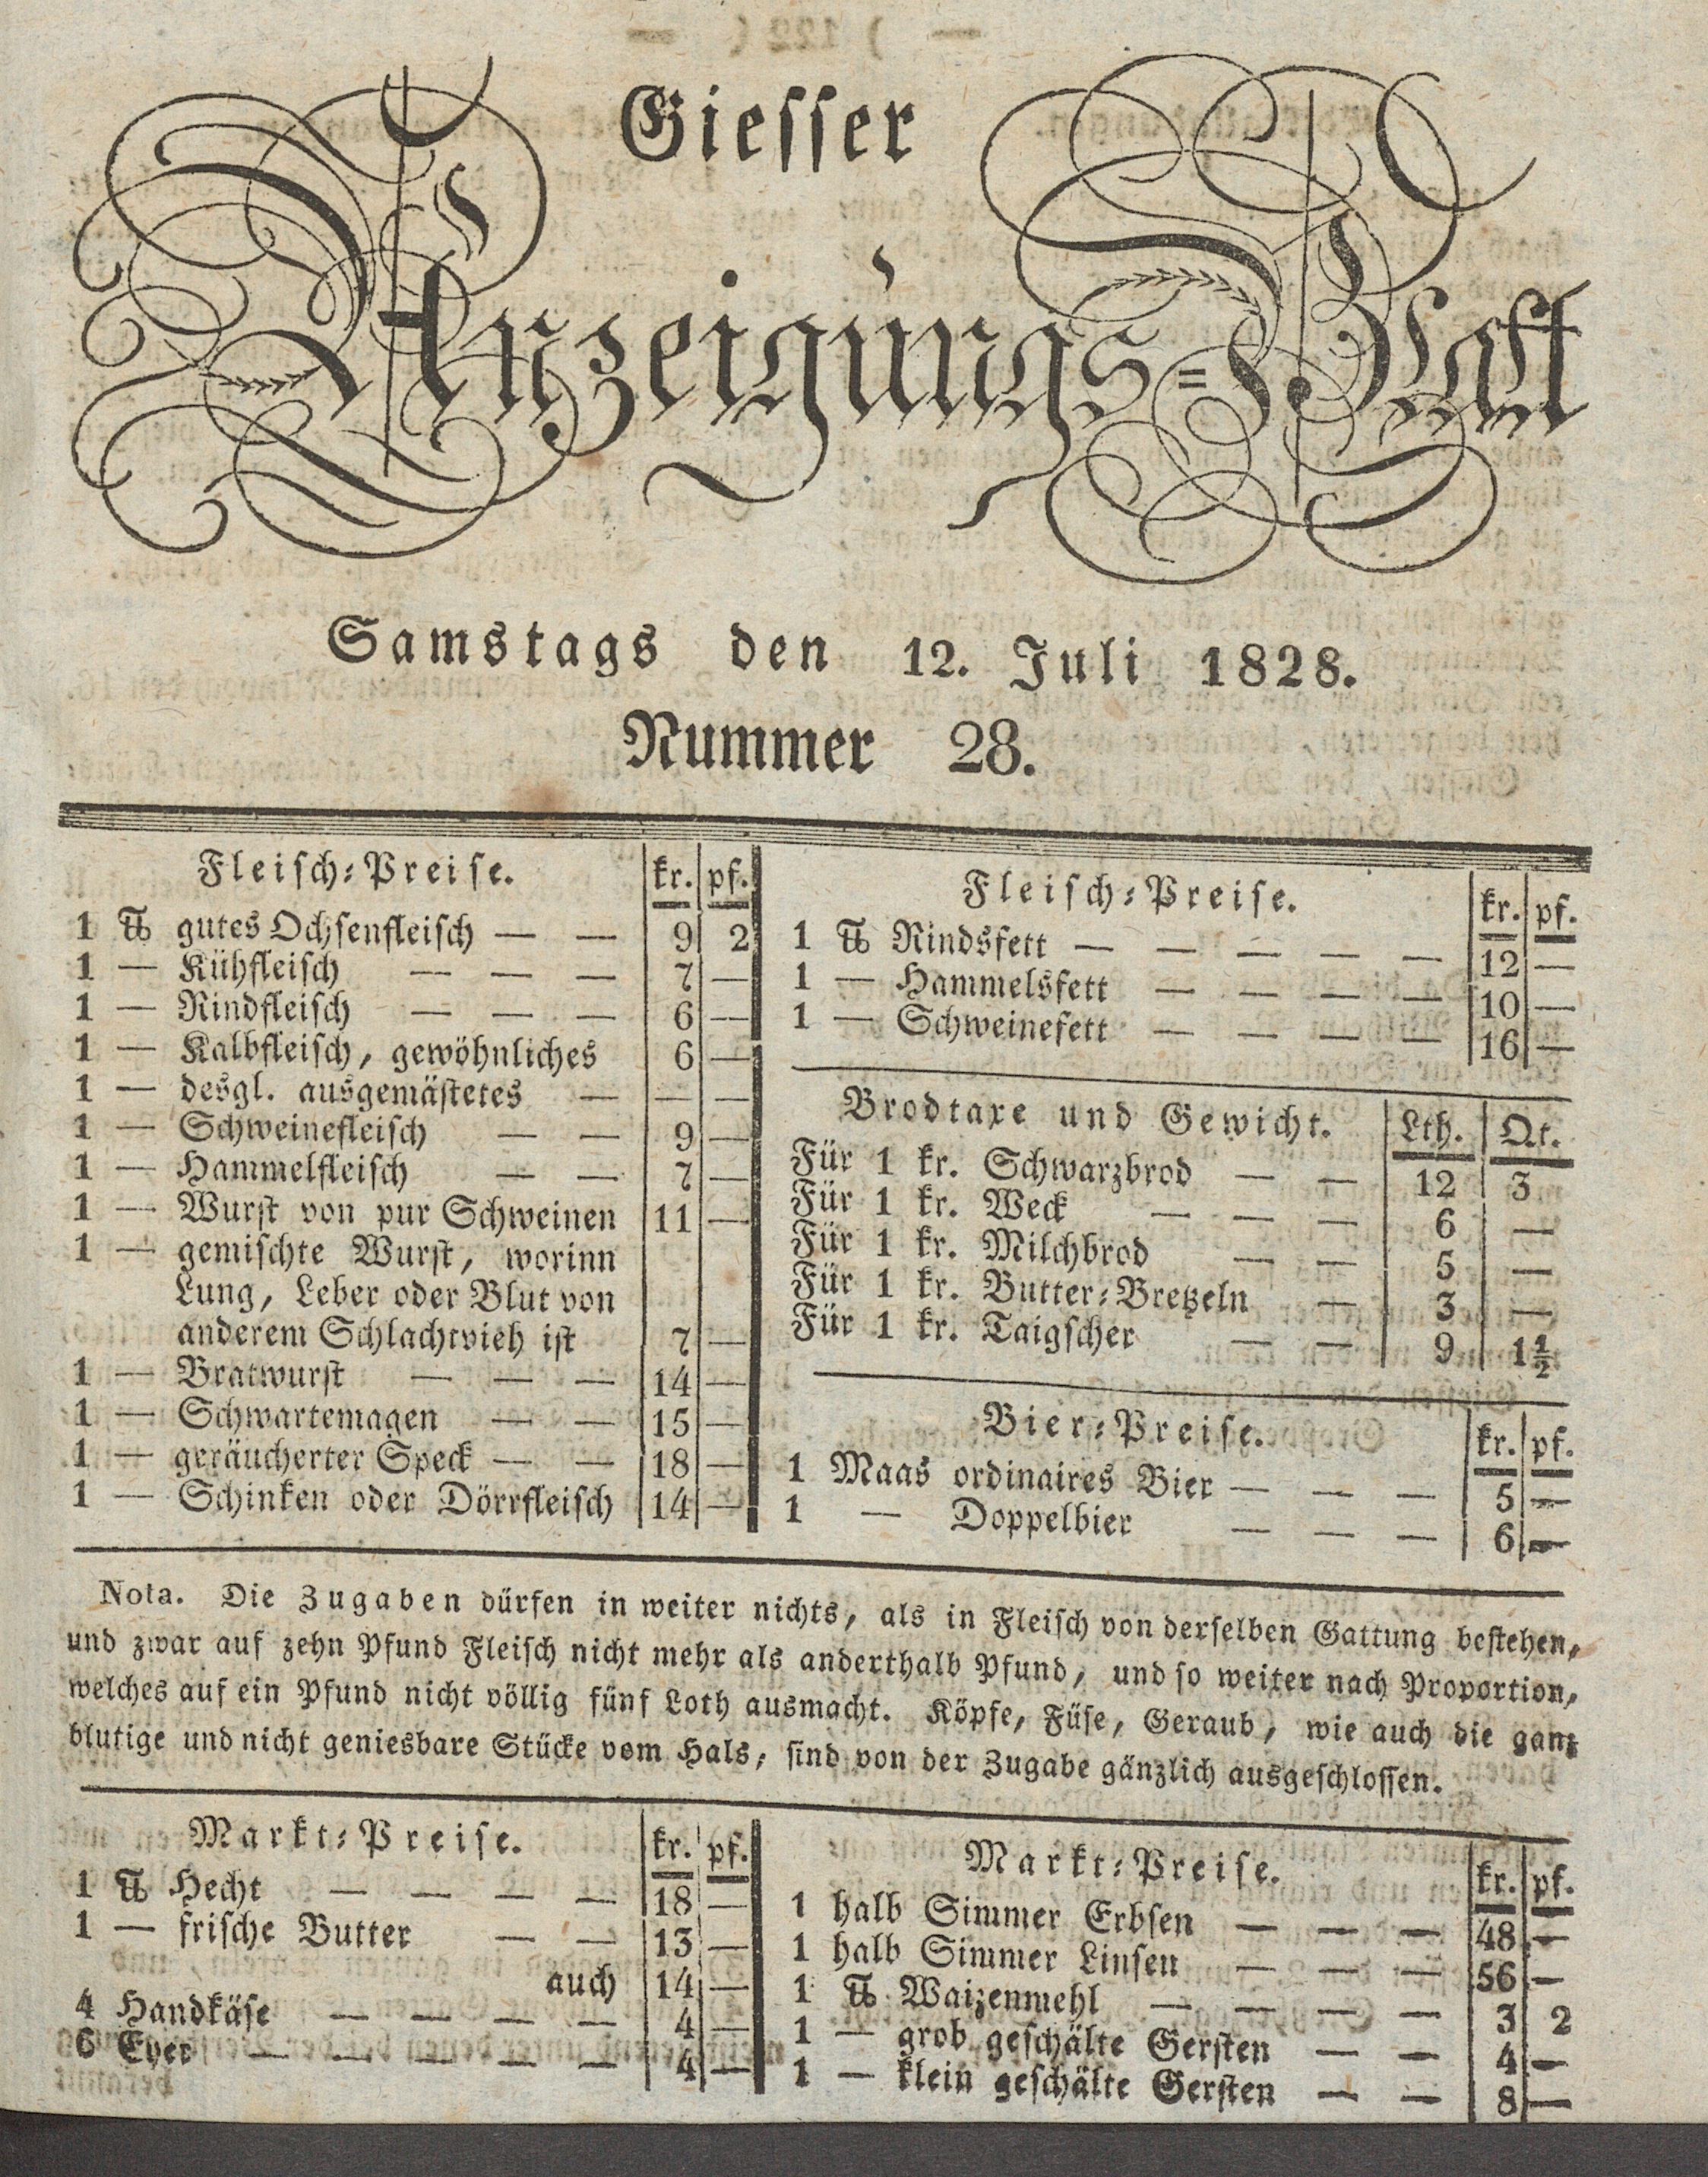 Giesser
Anzeigungs=Blatt
Samstags den 12. Juli 1828.
Nummer 28.
Fleisch=Preise. kr. pf.
1 ℔ gutes Ochsenfleisch — — 9 2
1 — Kühfleisch — — — 7 —
1 — Rindfleisch — — — 6 —
1 — Kalbfleisch, gewöhnliches 6 —
1 — desgl. ausgemästetes — — —
1 — Schweinefleisch — — 9 —
1 — Hammelfleisch — — 7 —
1 — Wurst von pur Schweinen 11 —
1 — gemischte Wurst, worinn
Lung, Leber oder Blut von
anderem Schlachtvieh ist 7 —
1 — Bratwurst — — — 14 —
1 — Schwartemagen — — 15 —
1 — geräucherter Speck — — 18 —
1 — Schinken oder Dörrfleisch 14 —
Fleisch=Preise. kr. pf.
1 ℔ Rindsfett — — — — — 12 —
1 — Hammelsfett — — — — 10 —
1 — Schweinefett — — — — 16 —
Brodtaxe und Gewicht. Lth. Qt.
Für 1 kr. Schwarzbrod — — 12 3
Für 1 kr. Weck — — — 6 —
Für 1 kr. Milchbrod — — 5 —
Für 1 kr. Butter=Bretzeln — 3 —
Für 1 kr. Taigscher — — 9 1½
Bier=Preise. kr. pf.
1 Maas ordinaires Bier — — — 5 —
1 — Doppelbier — — — 6 —
Nota. Die Zugaben dürfen in weiter nichts, als in Fleisch von derselben Gattung bestehen,
und zwar auf zehn Pfund Fleisch nicht mehr als anderthalb Pfund, und so weiter nach Proportion,
welches auf ein Pfund nicht völlig fünf Loth ausmacht. Köpfe, Füse, Geraub, wie auch die ganz
blutige und nicht geniesbare Stücke vom Hals, sind von der Zugabe gänzlich ausgeschlossen.
Markt=Preise. kr. pf.
1 ℔ Hecht — — — — 18 —
1 — frische Butter — — 13 —
auch 14 —
4 Handkäse — — — — 4 —
6 Eyer — — — — — 4 —
Markt=Preise. kr. pf.
1 halb Simmer Erbsen — — — 48 —
1 halb Simmer Linsen — — — 56 —
1 ℔ Waizenmehl — — — — 3 2
1 — grob geschälte Gersten — — 4 —
1 — klein geschälte Gersten — — 8 —